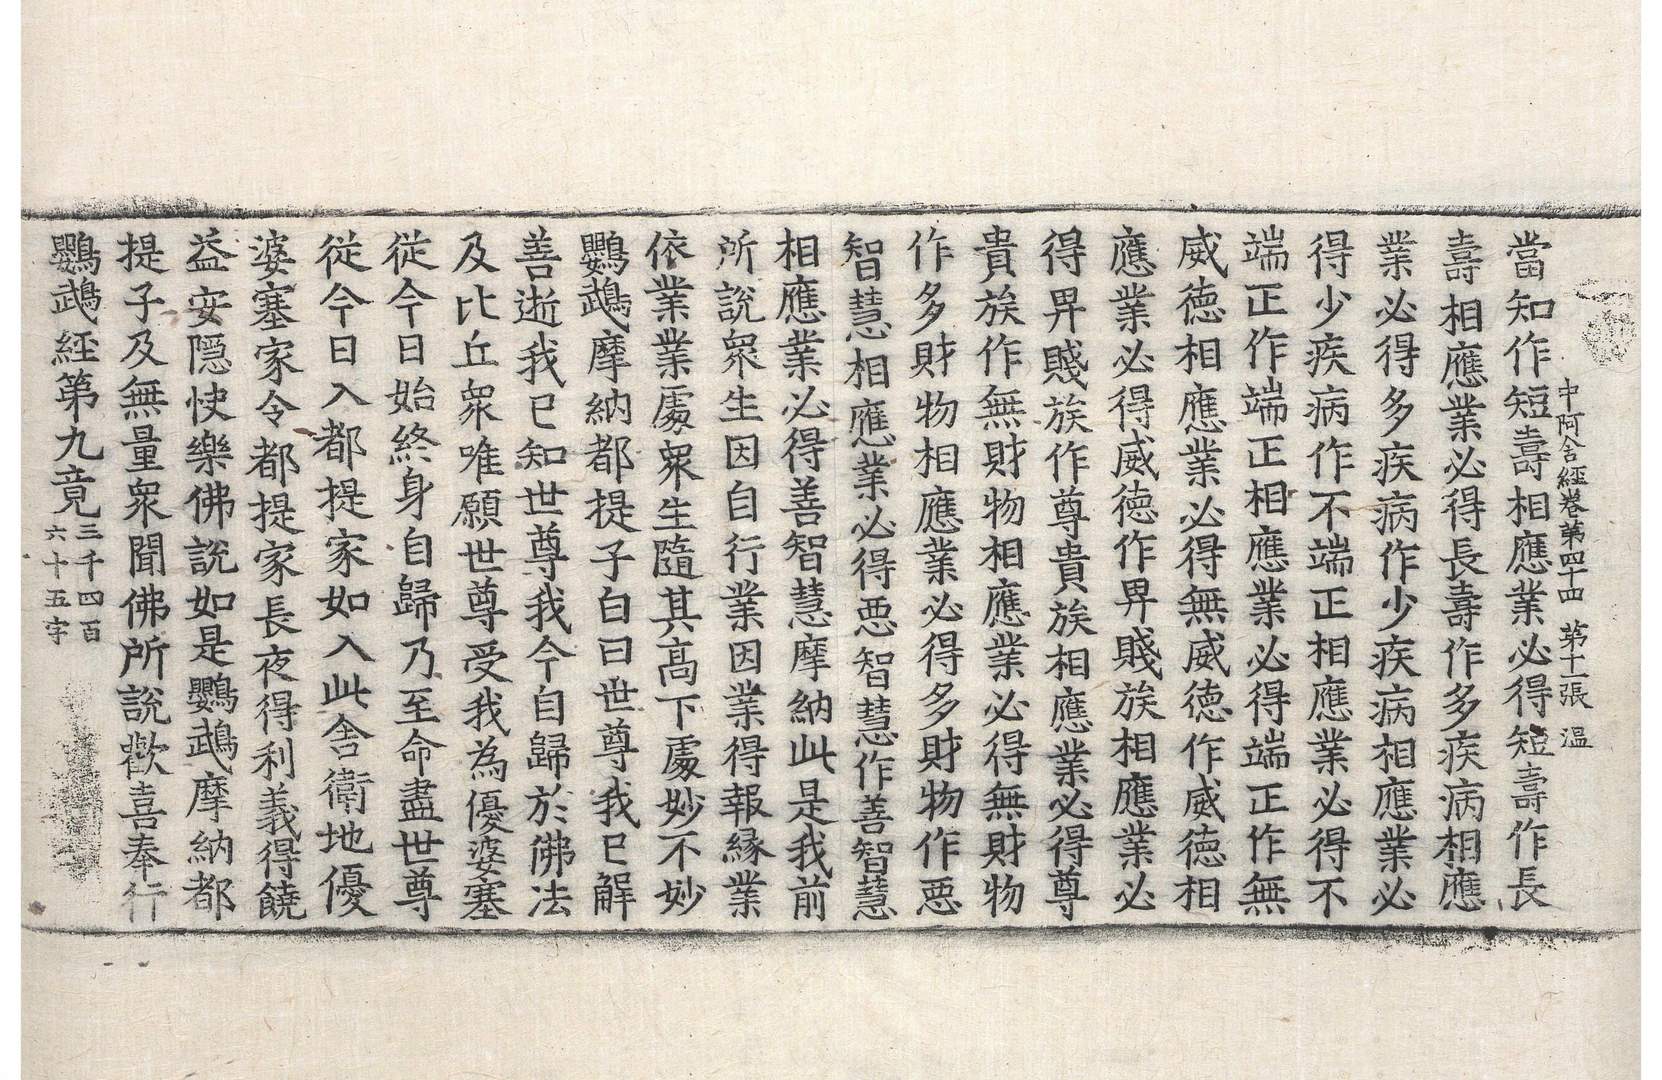 中阿含經卷第四十四 第十二張 温
當知作短壽相應業必得短壽作長
壽相應業必得長壽作多疾病相應
業必得多疾病作少疾病相應業必
得少疾病作不端正相應業必得不
端正作端正相應業必得端正作無
威德相應業必得無威德作威德相
應業必得威德作畀賤族相應業必
得畀賤族作尊貴族相應業必得尊
貴族作無財物相應業必得無財物
作多財物相應業必得多財物作惡
智慧相應業必得惡智慧作善智慧
相應業必得善智慧摩納此是我前
所說衆生因自行業因業得報緣業
依業業處衆生隨其高下處妙不妙
鸚鵡摩納都提子白曰世尊我已解
善逝我已知世尊我今自歸於佛法
及比丘衆唯願世尊受我為優婆塞
從今日始終身自歸乃至命盡世尊
從今日入都提家如入此舍衛地優
婆塞家令都提家長夜得利義得饒
益安隱快樂佛說如是鸚鵡摩納都
提子及無量衆聞佛所說歡喜奉行
鸚鵡經第九竟 三千四百
六十五字